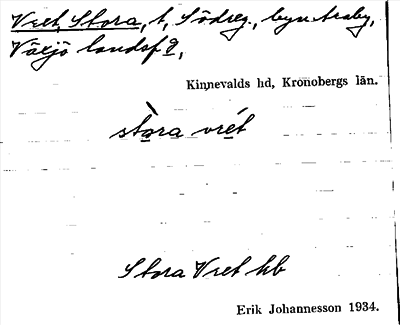 Vret, Stora, t, Södreg., byn Araby,
Växjö landsf.,
Kinnevalds hd, Kronobergs län.
stòra vrét
Stora Vret hb
Erik Johannesson 1934.